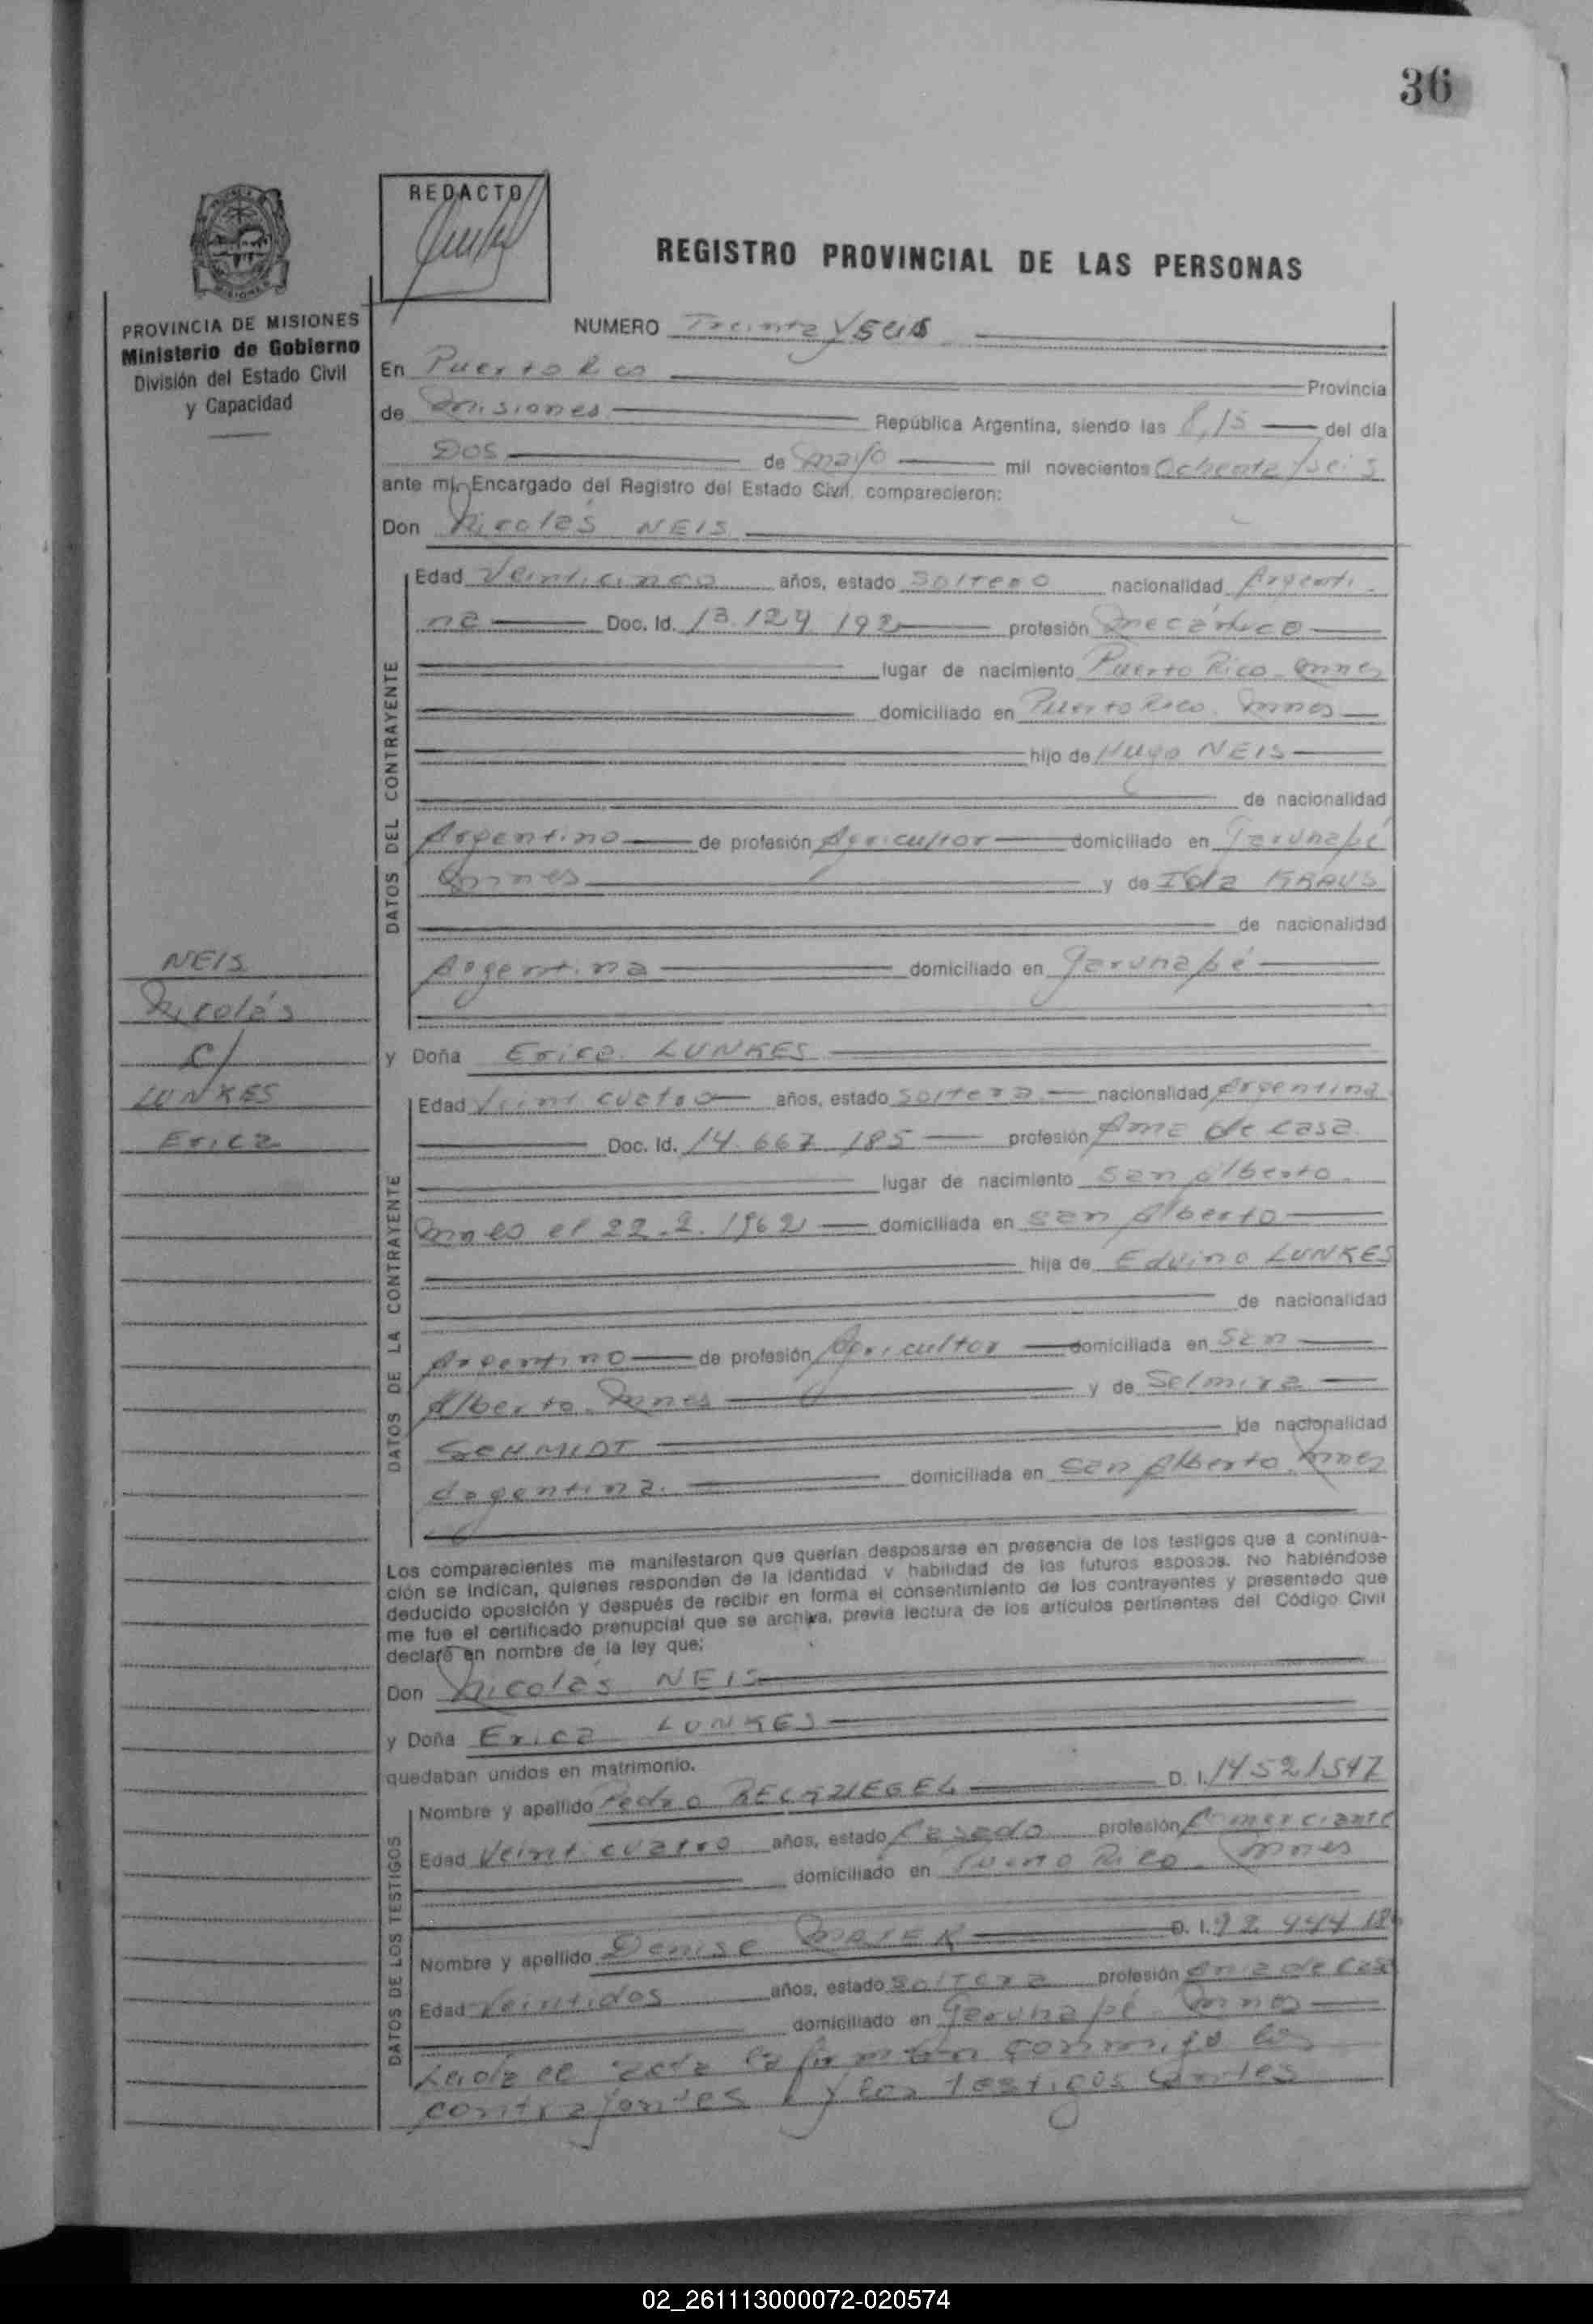 36
REDACTO
REGISTRO PROVINCIAL DE LAS PERSONAS
PROVINCIA DE MISIONES
Ministerio de Gobierno
División del Estado Civil
y Capacidad
NUMERO Treinta y seis
En Puerto Rico Provincia
de Misiones República Argentina, siendo las 8,15 del día
Dos de mayo mil novecientos Ochenta y seis
ante mí, Encargado del Registro del Estado Civil, comparecieron:
Don Nicolás NEIS
DATOS DEL CONTRAYENTE
Edad Veinticinco años, estado Soltero nacionalidad Argenti
na Doc. Id. 13.124 192 profesión Mecánico
lugar de nacimiento Puerto Rico. Mnes
domiciliado en Puerto Rico. Mnes
hijo de Hugo NEIS
de nacionalidad
Argentino de profesión Agricultor domiciliado en Garuhapé
Mnes y de Ida KRAUS
de nacionalidad
Argentina domiciliado en Garuhapé
NEIS
Nicolás
c/
LUNKES
Erica
y Doña Erica LUNKES
DATOS DE LA CONTRAYENTE
Edad Veinticuatro años, estado Soltera nacionalidad Argentina
Doc. Id. 14.667.185 profesión Ama de casa
lugar de nacimiento San Alberto.
Mnes el 22.2.1962 domiciliada en San Alberto
hija de Edvino LUNKES
de nacionalidad
Argentino de profesión Agricultor domiciliada en San
Alberto. Mnes y de Selmira
SCHMIDT de nacionalidad
Argentina. domiciliada en San Alberto. Mnes
Los comparecientes me manifestaron que querían desposarse en presencia de los testigos que a continua-
ción se indican, quienes responden de la identidad y habilidad de los futuros esposos. No habiéndose
deducido oposición y después de recibir en forma el consentimiento de los contrayentes y presentado que
me fue el certificado prenupcial que se archiva, previa lectura de los artículos pertinentes del Código Civil
declaré en nombre de la ley que:
Don Nicolás NEIS
y Doña Erica LUNKES
quedaban unidos en matrimonio.
DATOS DE LOS TESTIGOS
Nombre y apellido Pedro D. I. 14521547
Edad Veinticuatro años, estado Casado profesión Comerciante
domiciliado en Puerto Rico. Mnes
Nombre y apellido Denise D. I. 92 444
Edad Veintidos años, estado Soltera profesión Ama de casa
domiciliado en Garuhapé. Mnes
Leida el acta la firman conmigo los
contrayentes y los testigos
02_261113000072-020574